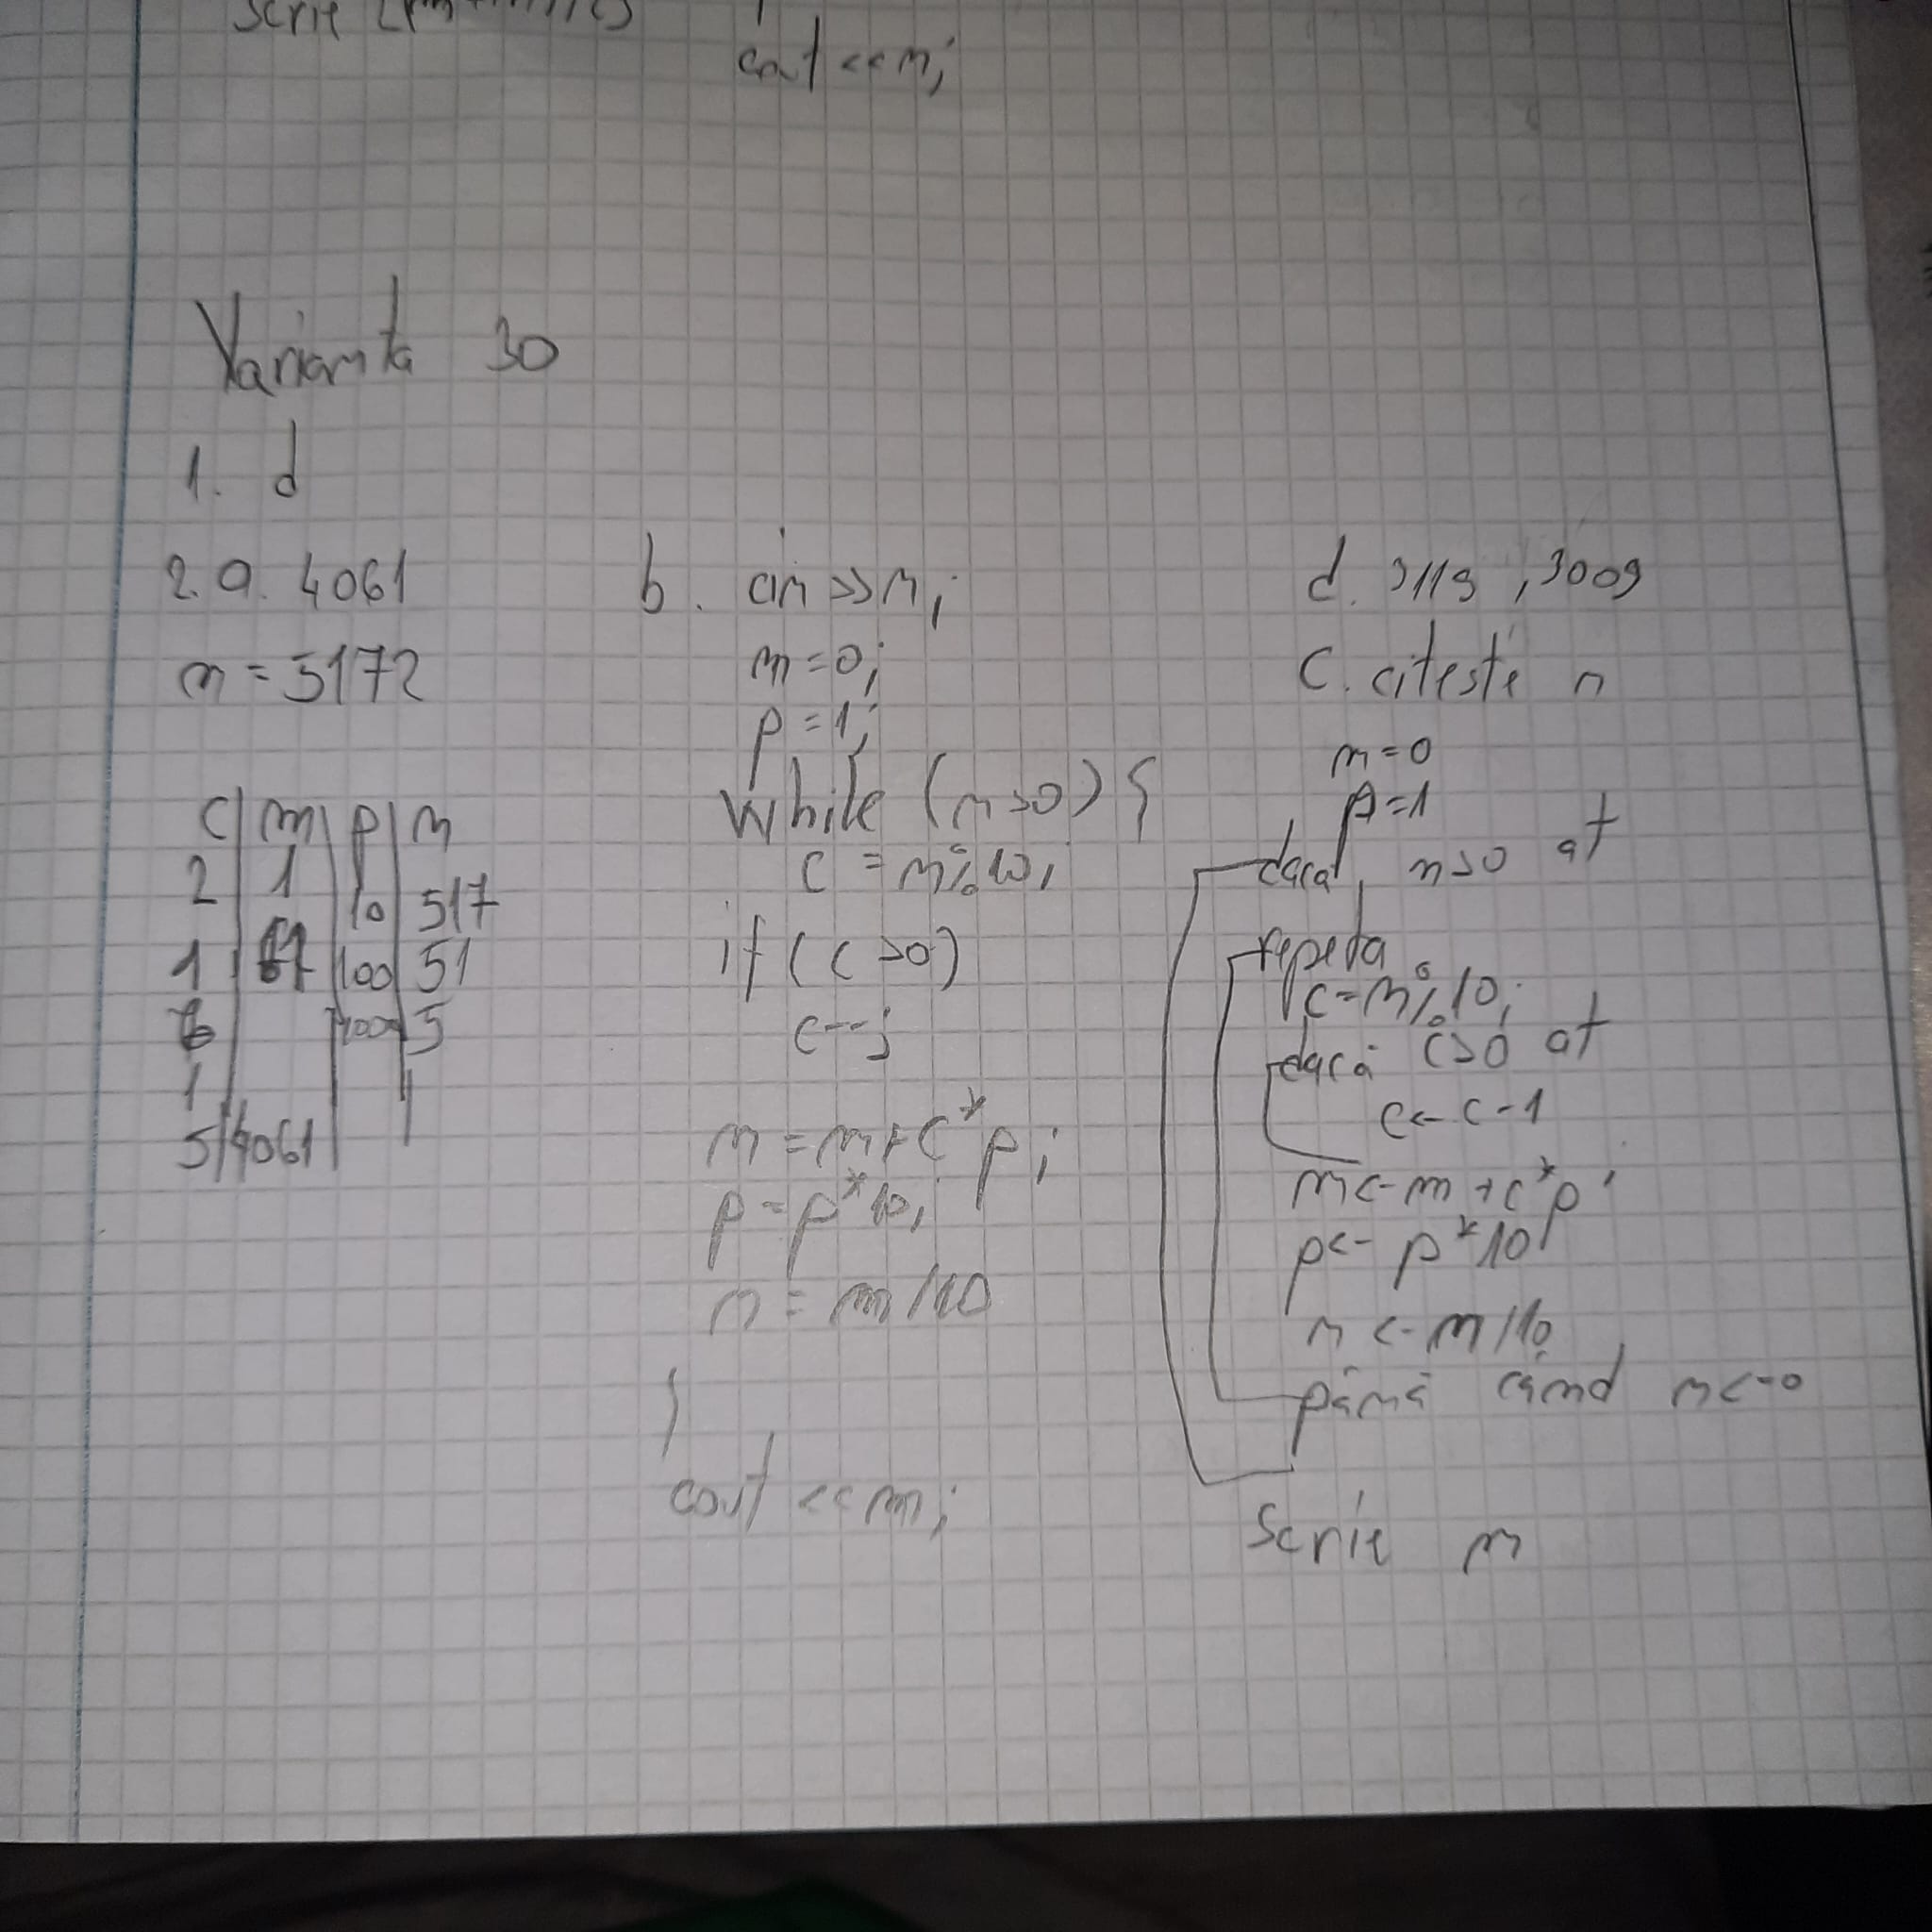 scrie
cout <<m;
Varianta 30
1. d
2.a. 4061
n=5172
c|m|p|n
2 1
10 517
1 100 51
5
1
5 4061
b. cin>>n;
m=0;
p=1;
while (n>0) {
c=n%10;
if (c>0)
c--;
m=m+c*p;
p=p*10;
n=n/10
}
cout <<m;
d. 3119, 3009
c. citeste n
m=0
p=1
dacă n>0 at
repeta
c=n%10;
dacă c>0 at
c<-c-1
m<-m+c*p
p<-p*10
n<-n/10
până când n<-0
Scrie m